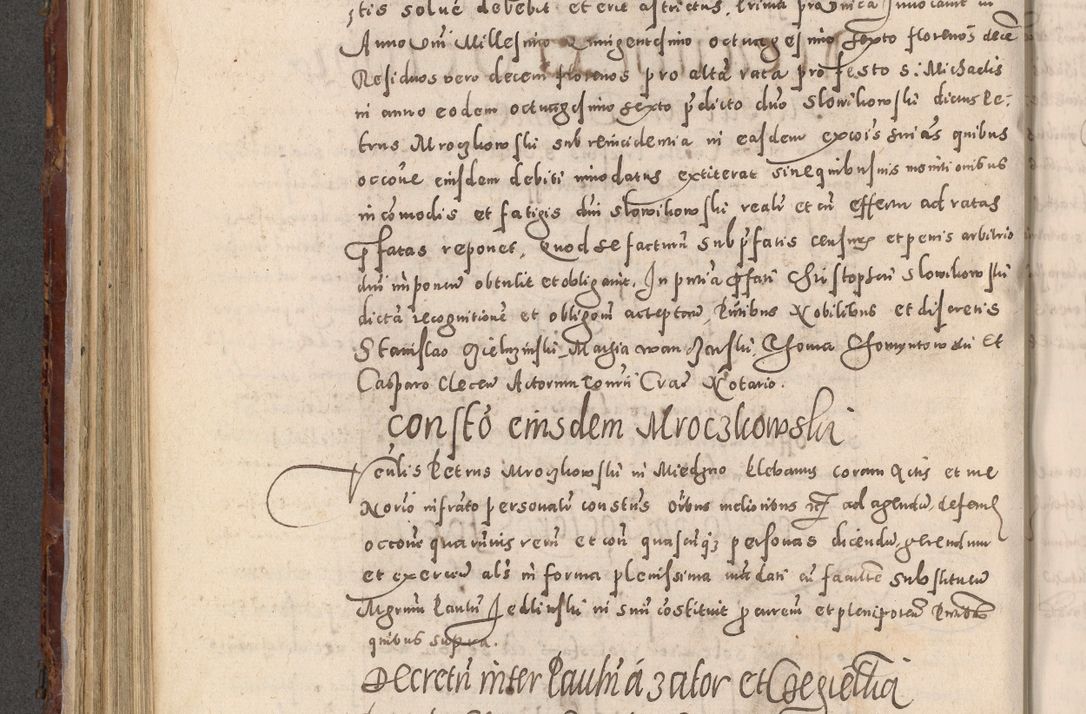 Anno Dni Millesimo Quingentesimo octuagesimo Sexto florenos decē
Residuos vero decem florenos pro altā rata pro festo S. Michaelis
in anno eodem octuagesimo sexto pdicto dno Slowikowski dictus Pe:
trus Mroczkowski sub reincidentia in easdem excōis snīas quibus
occōne eiusdem debiti innodatus extiterat sine quibusuis monitionibus
incōmodis et fatigis dni Slowikowski realr et cū effectu ad ratas
pfatas reponet, Quod se facturū sub pfatis censuris et penis arbitrio
dni imponen obtulit et obligauit. In pntia pfati Christophori Slowikowski
dictā recognitionē et obligōm acceptan, Pntibus Nobilibus et discretis
Stanislao Mathia Thoma et
Casparo Clecen Actorum Notario.
Constō eiusdem Mroczkowski
Venlis Petrus Mroczkowski in Miedzno Plebanus coram Actis et me
Norio infrāto personalr constūs oibus melioribus ad agendū, defend
occōne quarumuis rerū et con quascūq3 personas dicendū, gerendum
et exercen als in forma plenissima mandati cū facultē substituen
Mgrum Paulū Jedlinski in suū cōstituit procurem et plenipoten Pntibus
quibus supra.
Decretū inter Paulū á Zator et